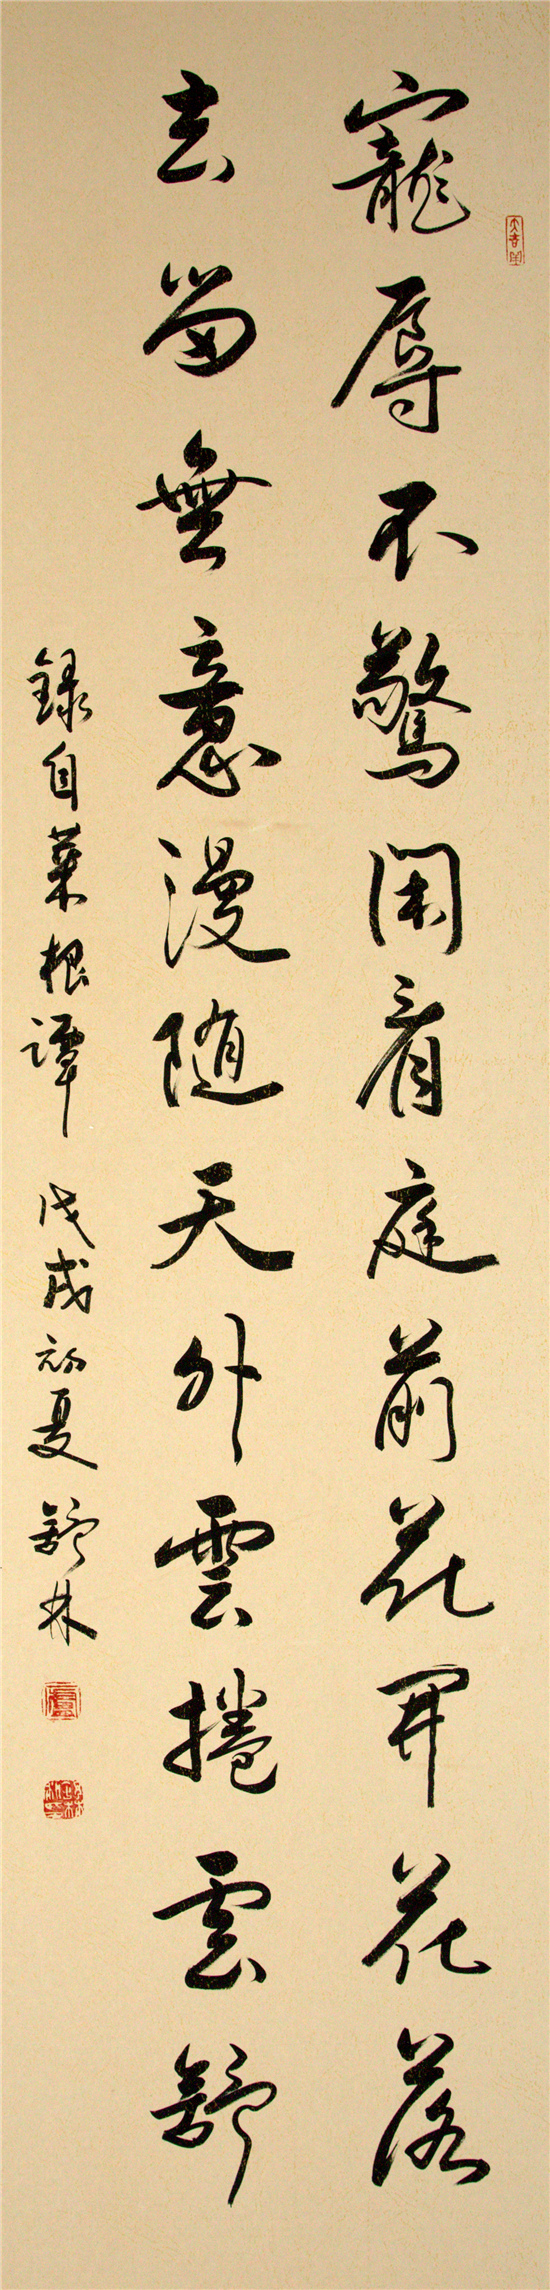 寵辱不驚閑看庭前花開花落
去留無意漫隨天外雲捲雲舒
錄自菜根譚 戊戌初夏 舒林